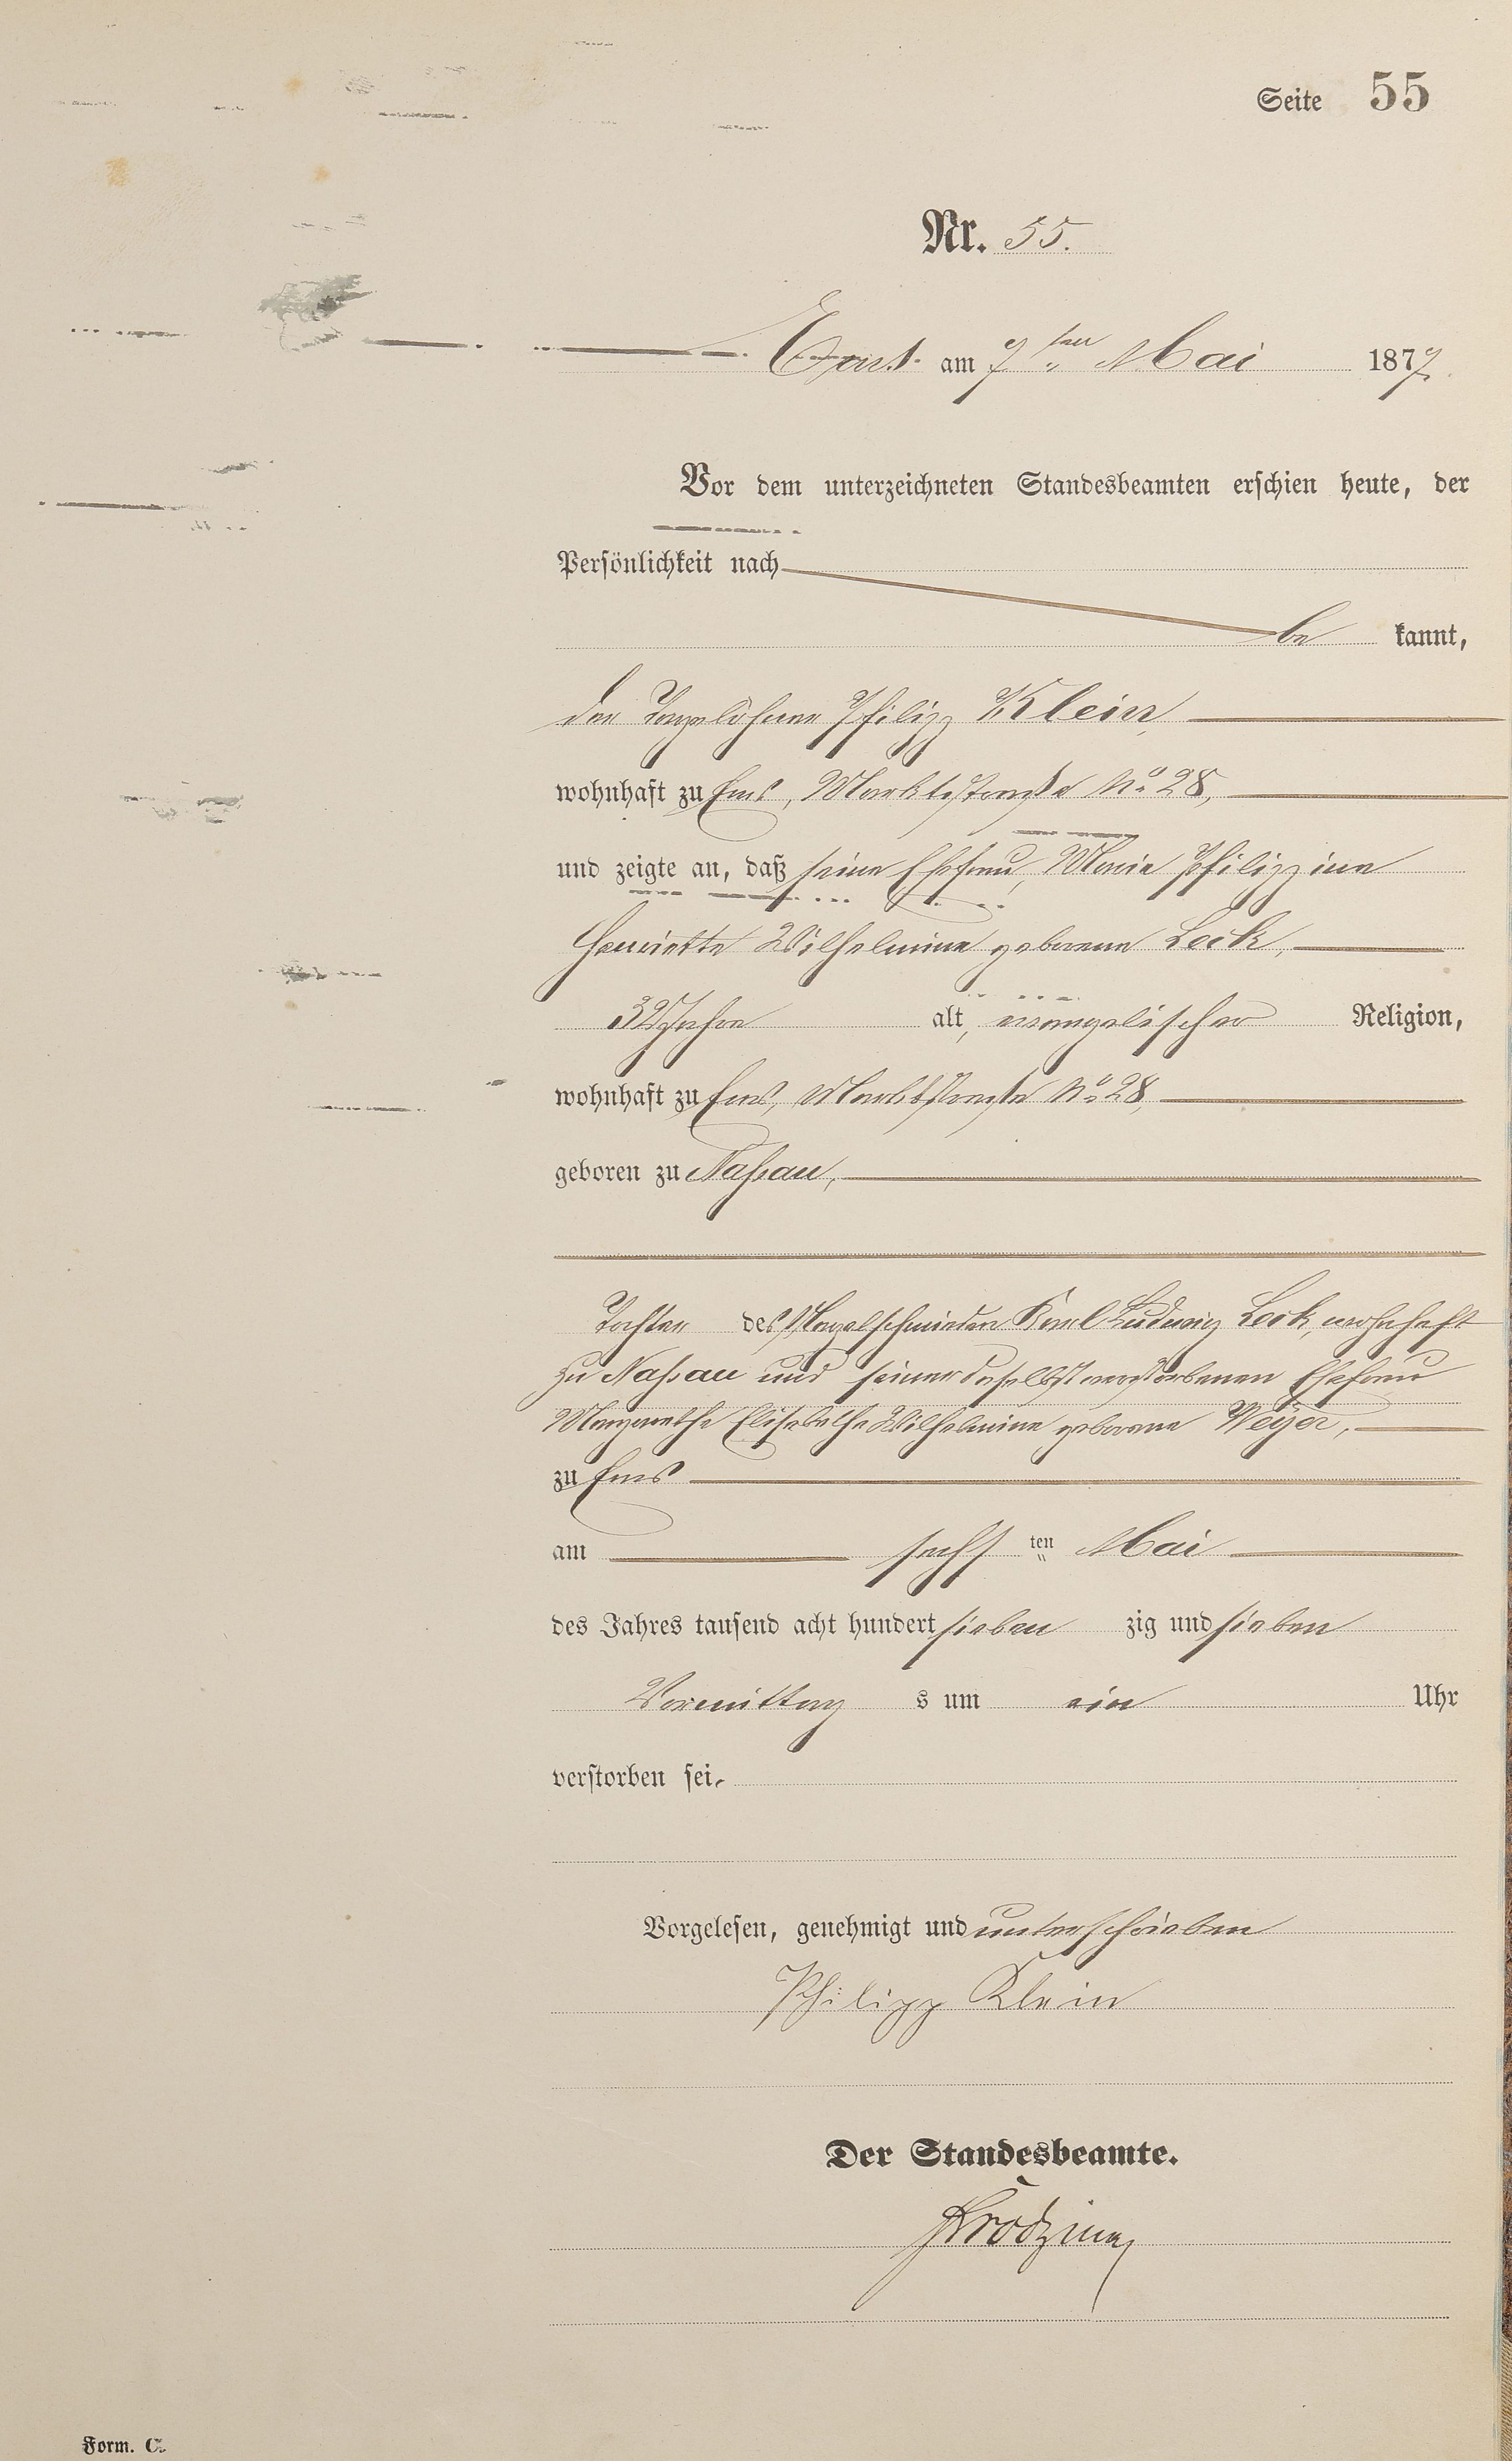 Seite 55
Nr. 55.
Ems am 7ten Mai 1877.
Vor dem unterzeichneten Standesbeamten erschien heute, der
Persönlichkeit nach
be kannt,
der Tagelöhner Philipp Klein,
wohnhaft zu Ems, Marktstraße No 28,
und zeigte an, daß seine Ehefrau, Marie Philippine
Henriette Wilhelmine geborene Lock,
32 Jahre alt, evangelischer Religion,
wohnhaft zu Ems, Marktstraße No 28,
geboren zu Nassau,
Tochter des Nagelschmieden Karl Ludwig Lock, wohnhaft
zu Nassau und seiner daselbst verstorbenen Ehefrau
Margarethe Elisabethe Wilhelmine geborene Weyer,
zu Ems
am sechsten Mai
des Jahres tausend acht hundert sieben zig und sieben
Vormittag s um ein Uhr
verstorben sei.
Vorgelesen, genehmigt und unterschrieben
Philipp Klein
Der Standesbeamte.
Form. C.